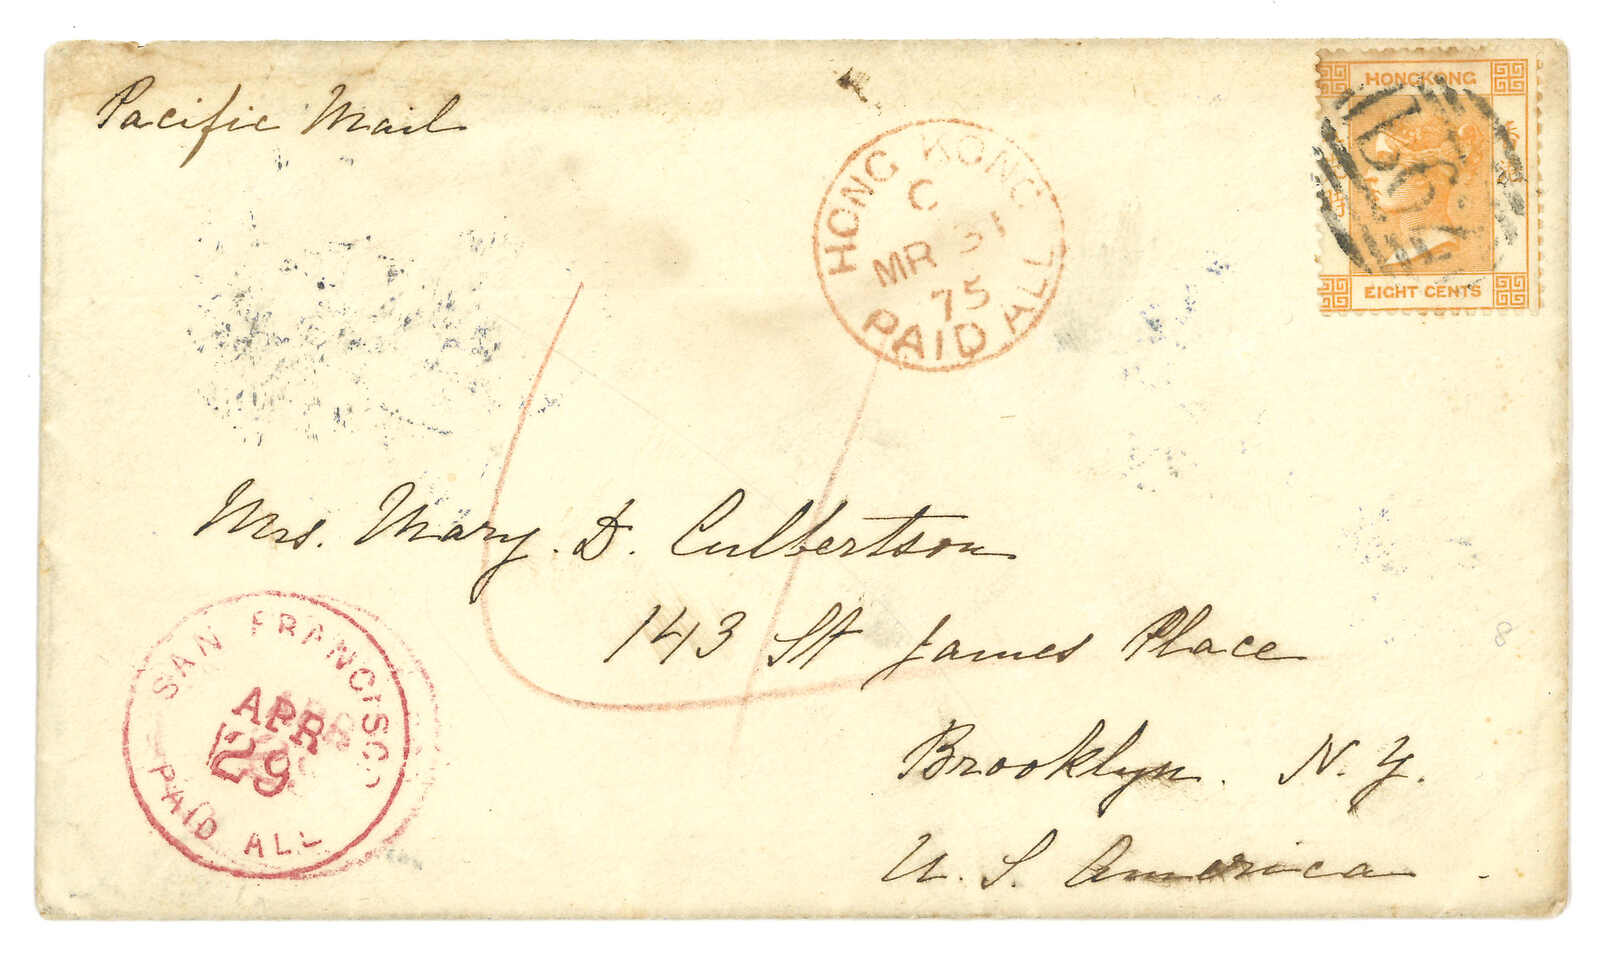 Pacific Mail
HONGKONG
EIGHT CENTS
HONG KONG
C
MR 31
75
PAID ALL
Mrs. Mary. D. Culbertson
143 St James Place
Brooklyn. N. Y.
U. S. America.
SAN FRANCISCO
APR
29
PAID ALL
8